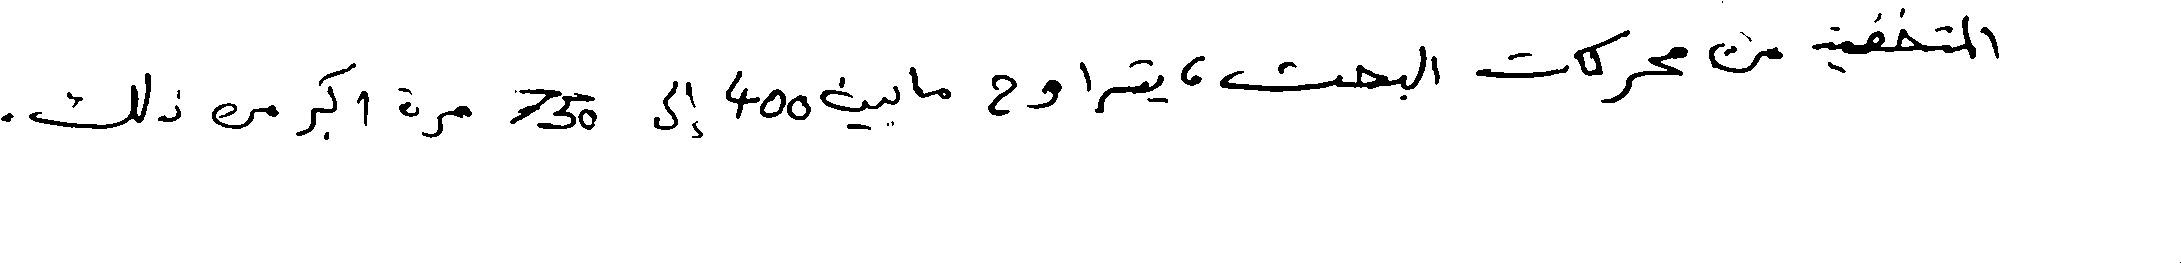 المتخفية من محركات البحث، يتراوح ما بين 400 إلى 750 مرة اكبر من ذلك.